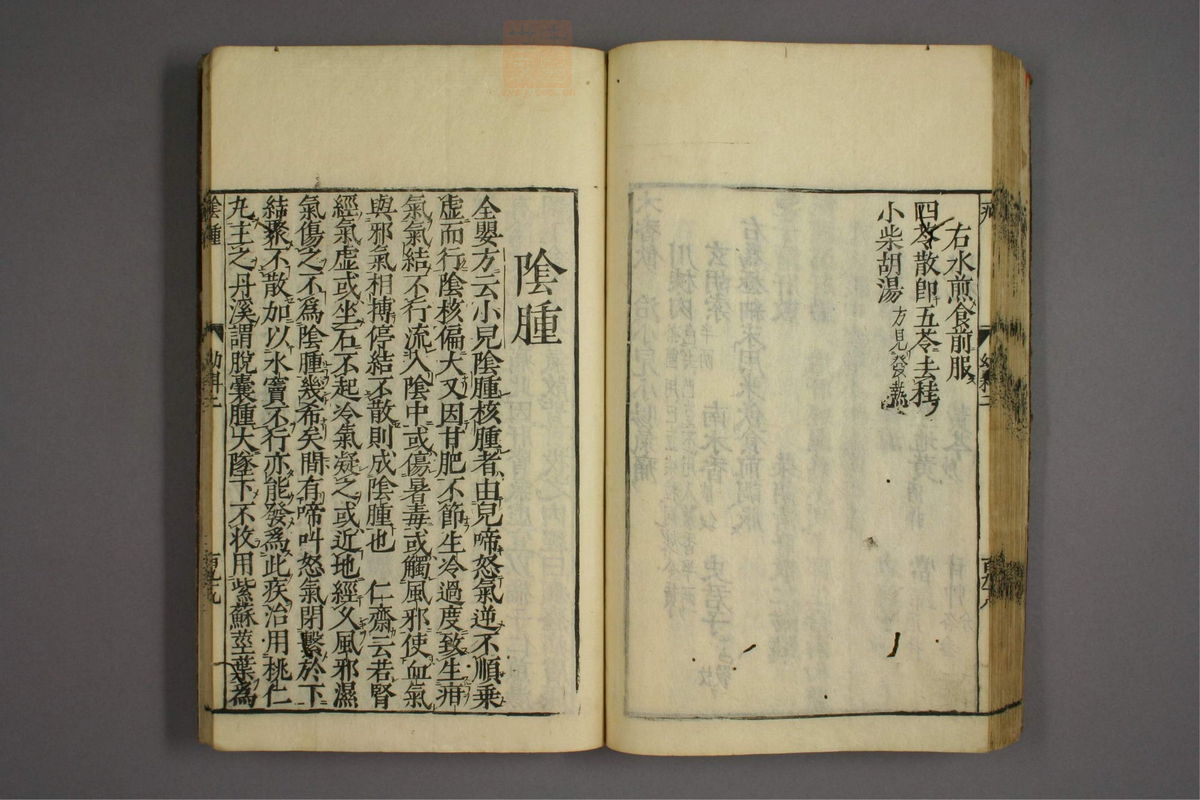 疝
幼科二
百九十八
右水煎食前服
四苓散即五苓去桂
小柴胡湯方見發熱
陰腫
全嬰方云小兒陰腫核腫者由兒啼怒氣逆不順乗
虚而行陰核偏大又因甘肥不節生冷過度致生疳
氣氣結不行流入陰中或傷暑毒或觸風邪使血氣
與邪氣相搏停結不散則成陰腫也 仁齋云若腎
經氣虚或坐石不起冷氣凝之或近地經久風邪濕
氣傷之不爲陰腫幾希矣間有啼叫怒氣閉繫於下
結聚不散加以水竇不行亦能發爲此疾治用桃仁
丸主之丹溪謂脫囊腫大墜下不收用紫蘇莖葉爲
陰腫
幼科二
百九十九